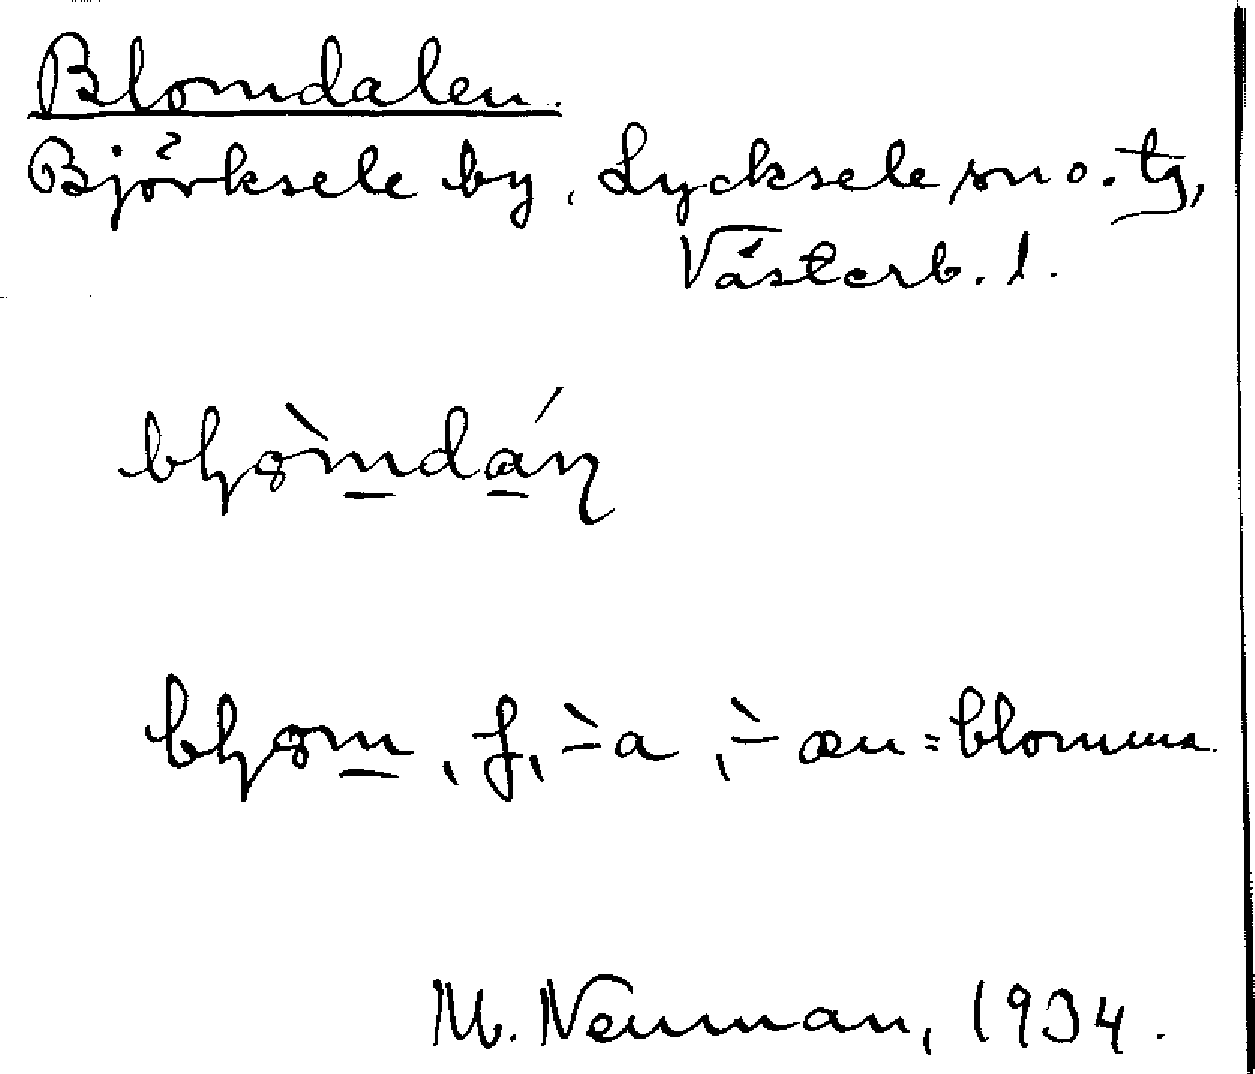 Blomdalen.
Björksele by, Lycksele sn o. tg,
Västerb. l.
bḷòm̲dá̲ṇ
bḷom̲, f, ̀-a, ̀-æn = blomma.
M. Neuman, 1934.